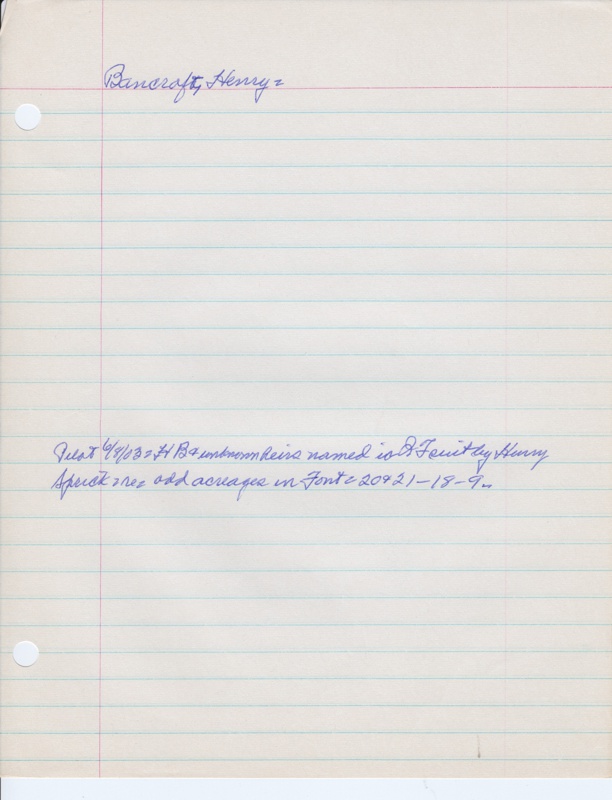 Bancroft, Henry =
Pilot 6/8/03 = H B & unknown heirs named in suit by Henry
Sprick = re = odd acreages in Font = 20 & 21-18-9.